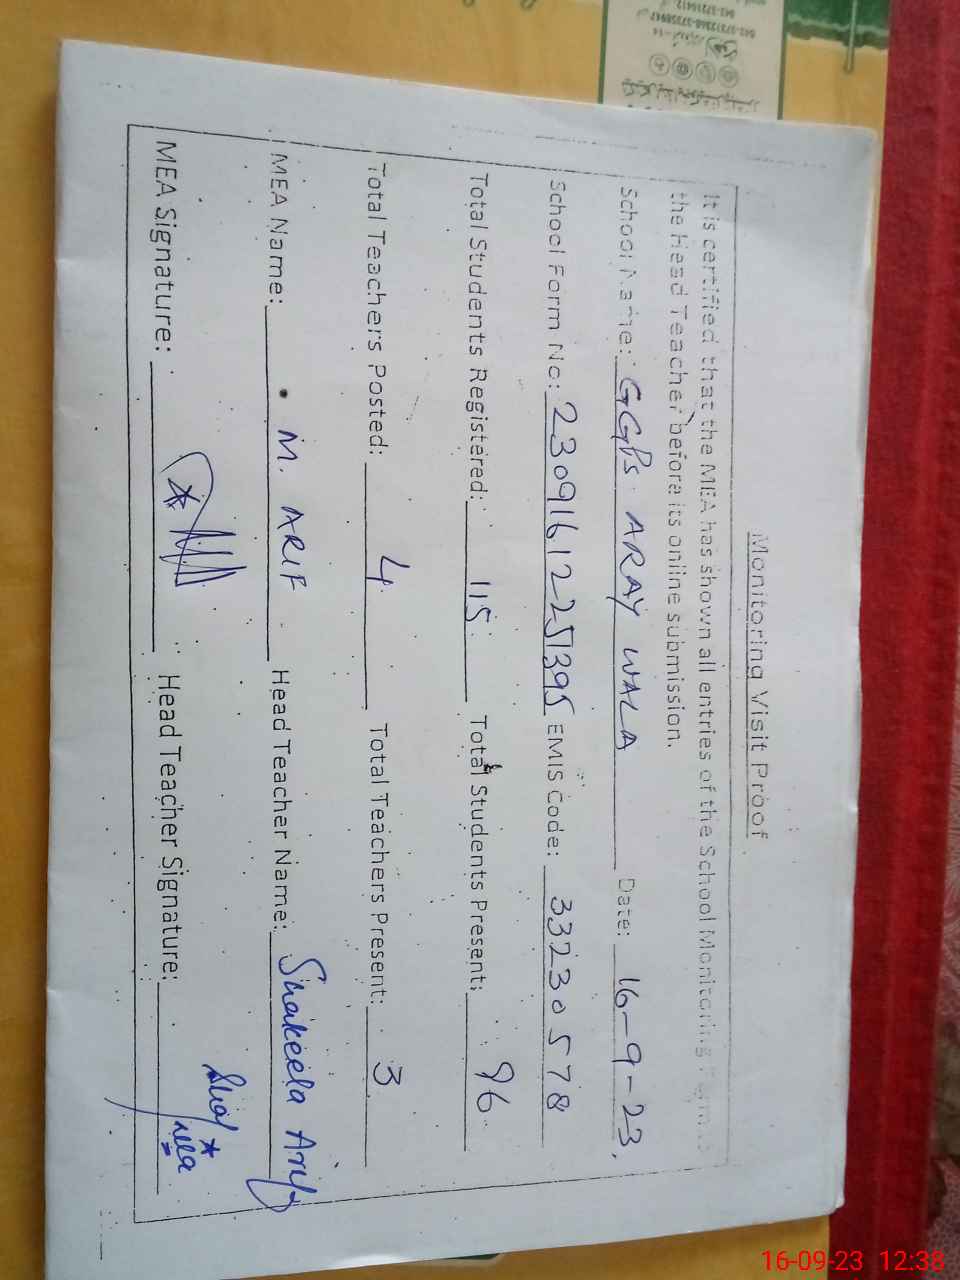 Monitoring Visit Proof
It is certified that the MEA has shown all entries of the School Monitoring Form to
the Head Teacher before its online submission.
School Name: GGPS ARAY WALA Date: 16-9-23.
School Form No: 23091612251395 EMIS Code: 33230578
Total Students Registered: 115 Total Students Present: 96
Total Teachers Posted: 4 Total Teachers Present: 3
MEA Name: M. ARIF Head Teacher Name: Shakeela Arif
MEA Signature: Head Teacher Signature:
16-09-23 12:38